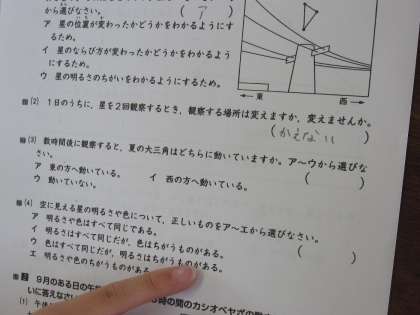 から選びなさい。 (ア)
ア 星の位置が変わったかどうかをわかるようにす
るため。
イ 星のならび方が変わったかどうかをわかるよう
にするため。
ウ 星の明るさのちがいをわかるようにするため。
← 東 西 →
(2) 1日のうちに、星を2回観察するとき、観察する場所は変えますか、変えませんか。
(かえない)
(3) 数時間後に観察すると、夏の大三角はどちらに動いていますか。ア〜ウから選びな
さい。
ア 東の方へ動いている。 イ 西の方へ動いている。 ( )
ウ 動いていない。
(4) 空に見える星の明るさや色について、正しいものをア〜エから選びなさい。
ア 明るさや色はすべて同じである。
イ 明るさはすべて同じだが、色はちがうものがある。
ウ 色はすべて同じだが、明るさはちがうものがある。 ( )
エ 明るさや色のちがうものがある。
2 9月のある日の午
時の間のカシオペヤ
いに答えなさ
(1) 午後